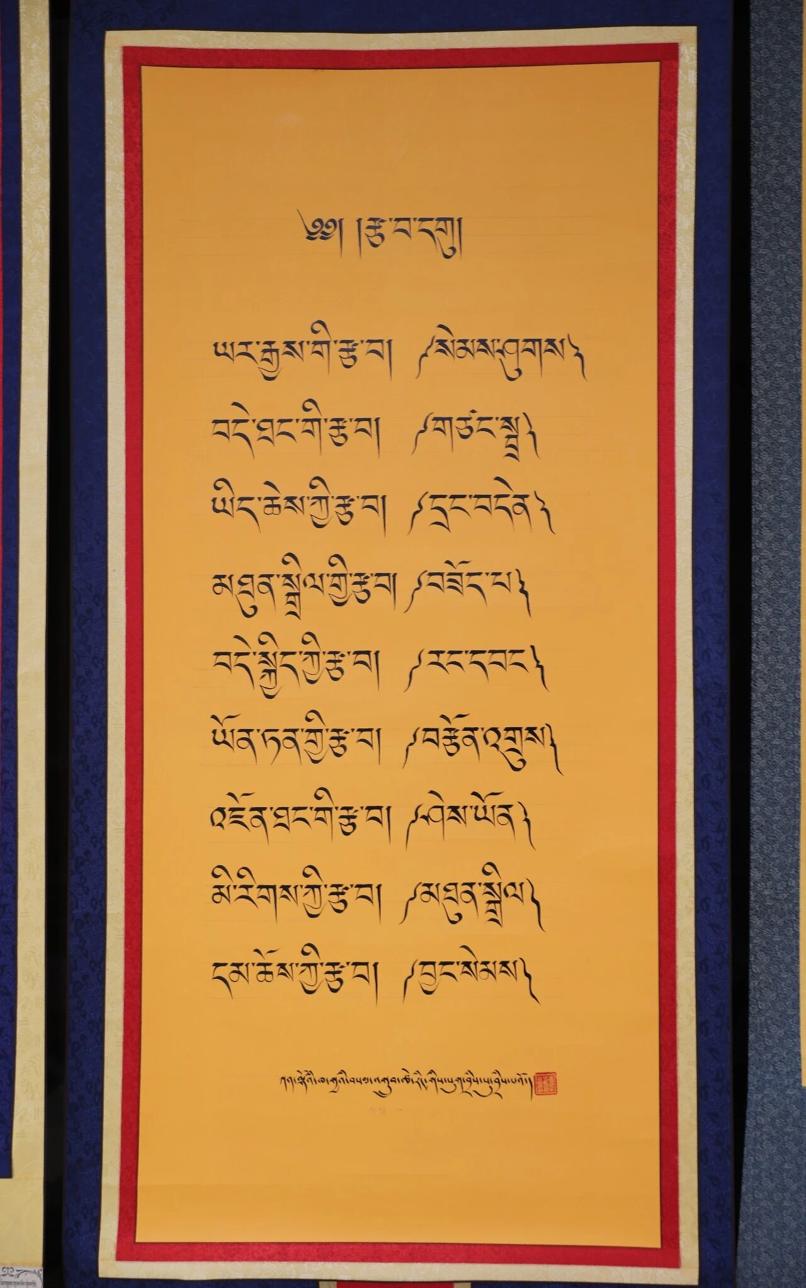 ༄༅། །རྩ་བ་དགུ།
ཡར་རྒྱས་གི་རྩ་བ། ༼སེམས་ཤུགས༽
བདེ་ཐང་གི་རྩ་བ། ༼གཙང་སྦྲ༽
ཡིད་ཆེས་ཀྱི་རྩ་བ། ༼དྲང་བདེན༽
མཐུན་སྒྲིལ་གྱི་རྩ་བ། ༼བཟོད་པ༽
བདེ་སྐྱིད་ཀྱི་རྩ་བ། ༼རང་དབང༽
ཡོན་ཏན་གྱི་རྩ་བ། ༼བརྩོན་འགྲུས༽
འཛོན་ཐང་གི་རྩ་བ། ༼ཤེས་ཡོན༽
མི་རིགས་ཀྱི་རྩ་བ། ༼མཐུན་སྒྲིལ༽
དམ་ཆོས་ཀྱི་རྩ་བ། ༼བྱང་སེམས༽